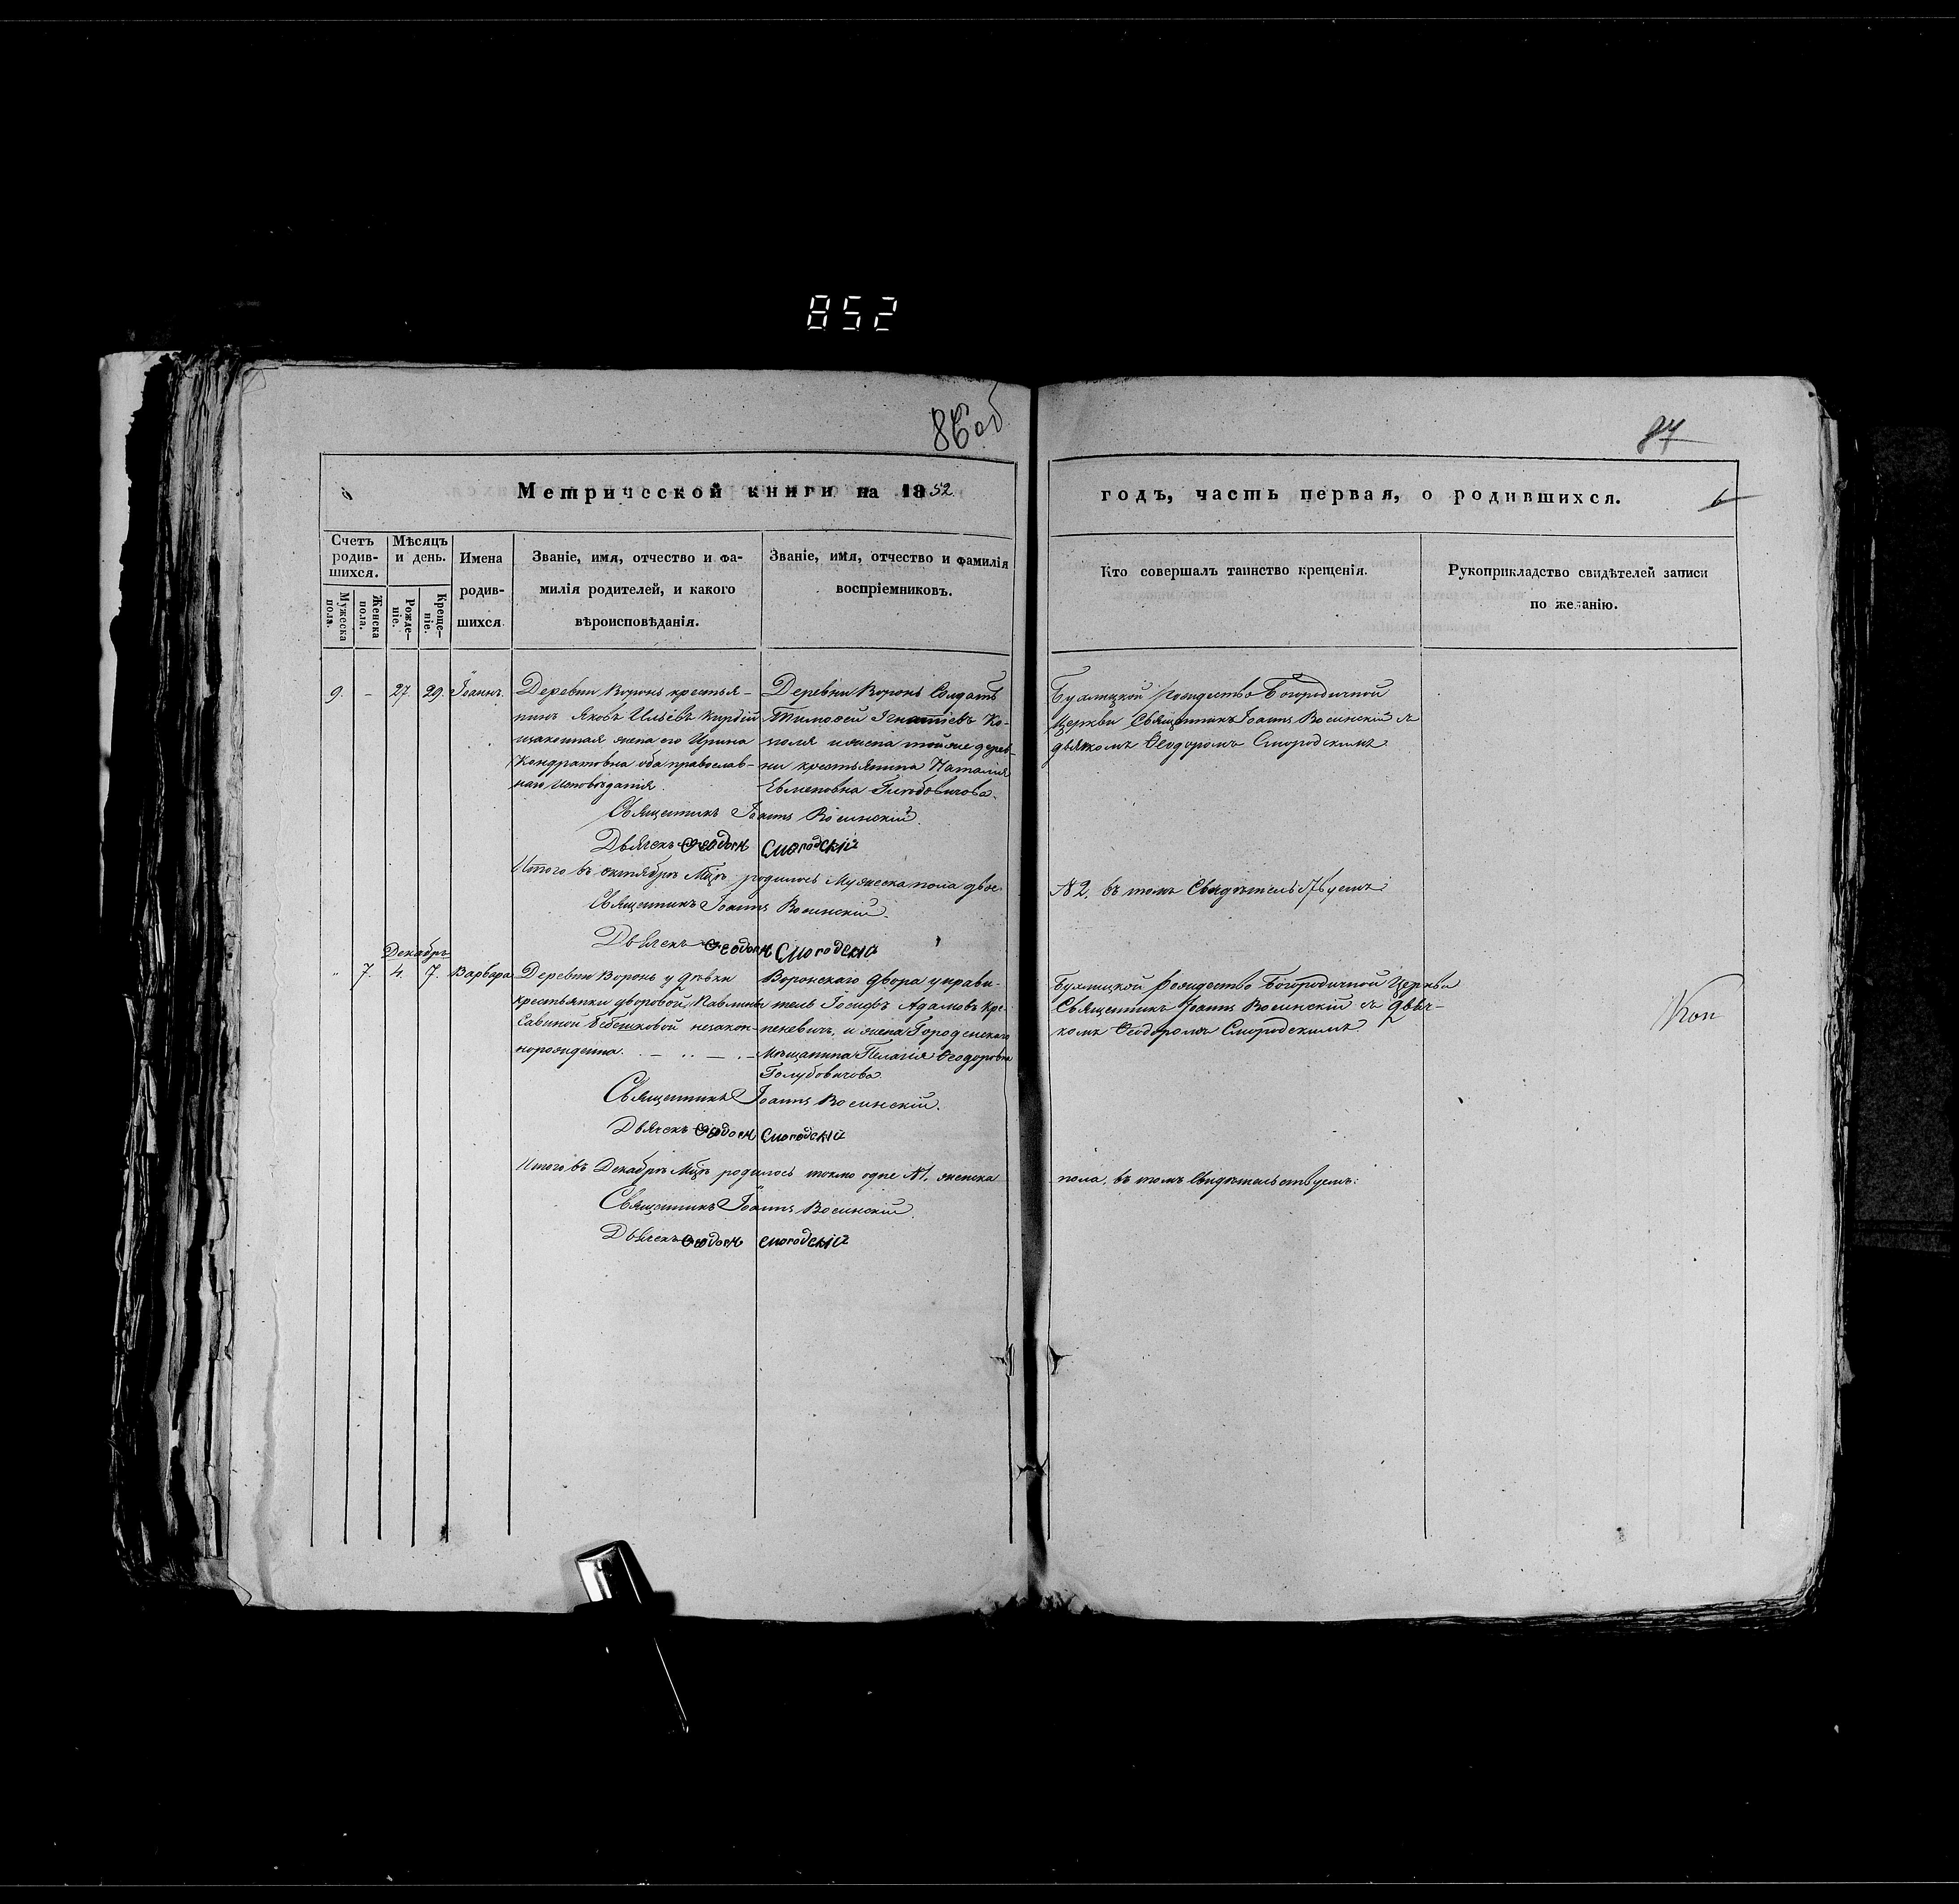 852
86об
87
6
Метрической книги на 1852.
годъ, часть первая, о родившихся.
6
Счетъ родив-шихся.
Мѣсяцъ и день.
Мужеска пола.
Женска пола.
Рожде-ніе.
Креще-ніе.
Имена родив-шихся
Званіе, имя, отчество и фа-
милія родителей, и какого
вѣроисповѣданія.
Званіе, имя, отчество и фамилія
воспріемниковъ.
Кто совершалъ таинство крещенія.
Рукоприкладство свидѣтелей записи
по желанію.
9. - 27. 29. Іоаннъ.
Деревни Воронь крестья-
нинъ Яковъ Ильевъ
законная жена его Ирина
Кондратовна оба православ-
наго исповѣданія.
Деревни Воронь Солдатъ
Тимоѳей Игнатіевъ Ко-
поля и жена тойже дерев-
ни крестьянина Наталія
Священникъ Іоаннъ Восинскій.
Дьячекъ Ѳеодоръ Смородскій
Буяницкой рождество Богородичной
Церкви Священникъ Іоаннъ Восинскій съ
дьячкомъ Ѳеодоромъ Смородскимъ
Итого въ октябрѣ Мцѣ родилось Мужеска пола двое
№ 2. въ томъ Свидѣтельствуемъ:
Священникъ Іоаннъ Восинскій.
Дьячекъ Ѳеодоръ Смородскій
Декабрь
" 7. 4. 7. Варвара
Деревни Воронь у дѣвки
крестьянки дворовой Павлины
Савиной незакон-
норожденна.
Воронскаго двора управи-
тель Іосифъ Адамовъ Кре-
пекевичъ, и жена Городенскаго
Мѣщанина Пелагія Ѳеодоровна
Голубовичова
Буяницкой рождество Богородичной Церкви
Священникъ Іоаннъ Восинскій съ дьяч-
комъ Ѳеодоромъ Смородскимъ
Коп
Священникъ Іоаннъ Восинскій.
Дьячекъ Ѳеодоръ Смородскій
Итого въ Декабрѣ Мцѣ родилось токмо одне №1. женска
пола, въ томъ Свидѣтельствуемъ:
Священникъ Іоаннъ Восинскій
Дьячекъ Ѳеодоръ Смородскій